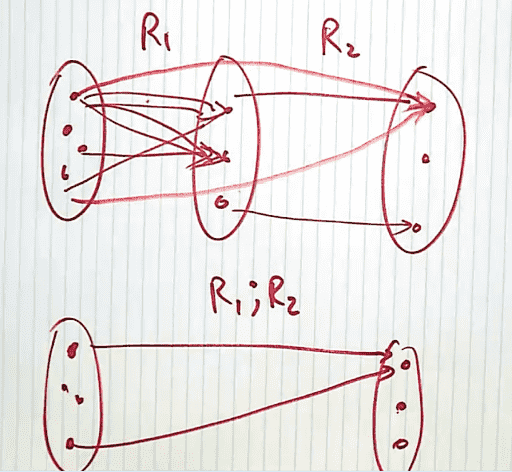 R₁ R₂
R₁;R₂